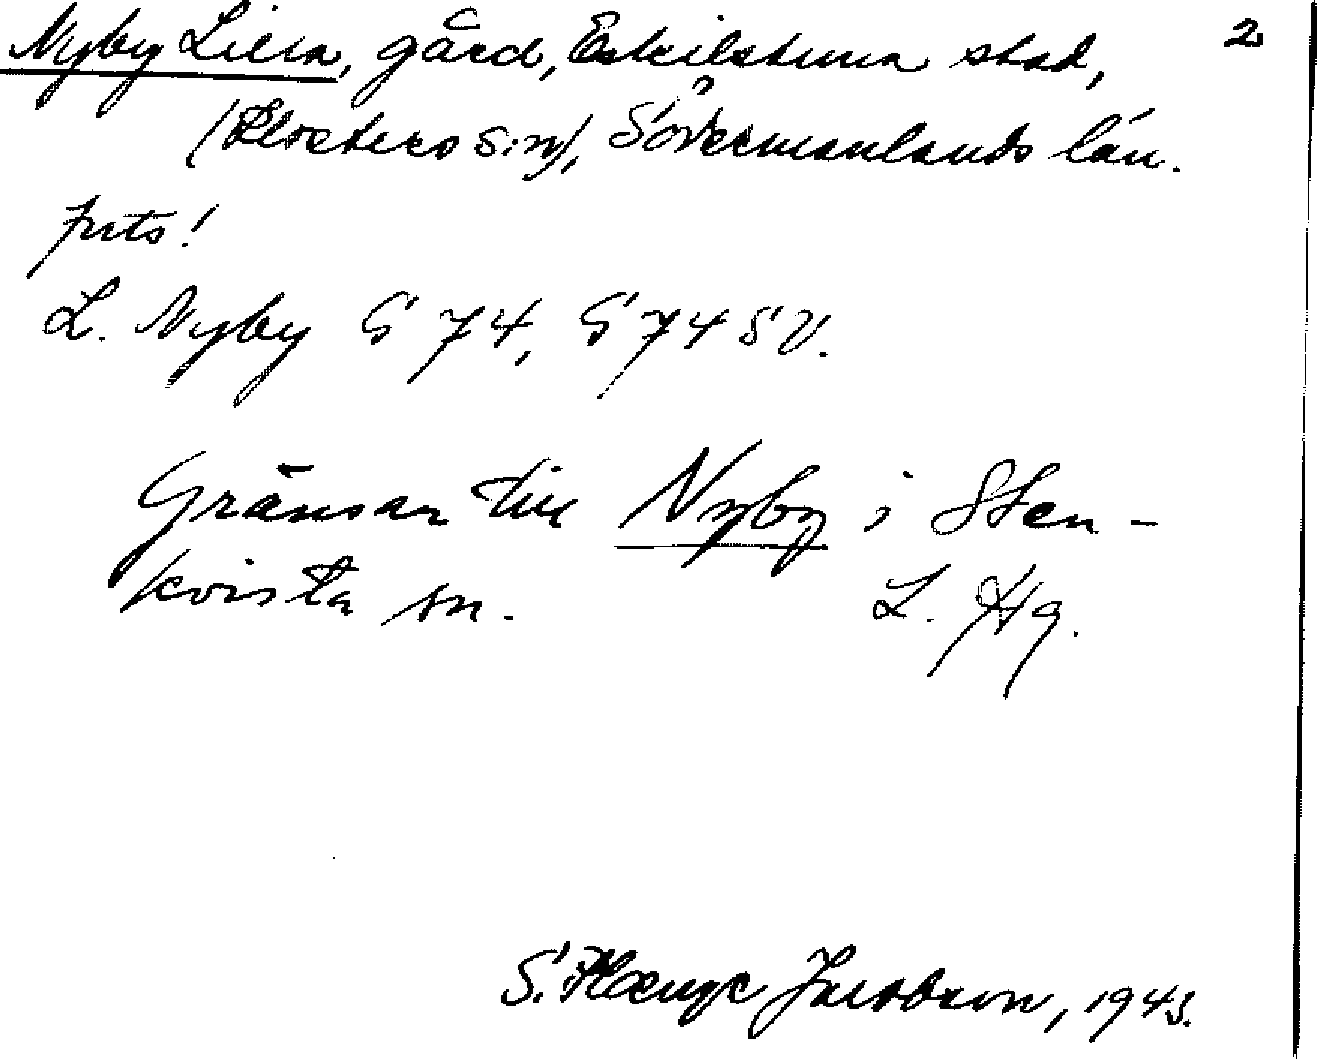 Nyby Lilla, gård, Eskilstuna stad, 2
(Klosters s:n), Södermanlands län.
L. Nyby G 74, G 74 SV.
Gränsar till Nyby i Sten-
kvista sn. L. Hg.
S. Jacobson, 1945.